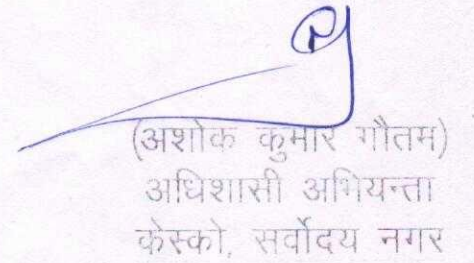 (अशोक कुमार गौतम)
अधिशासी अभियन्ता
केस्को, सर्वोदय नगर